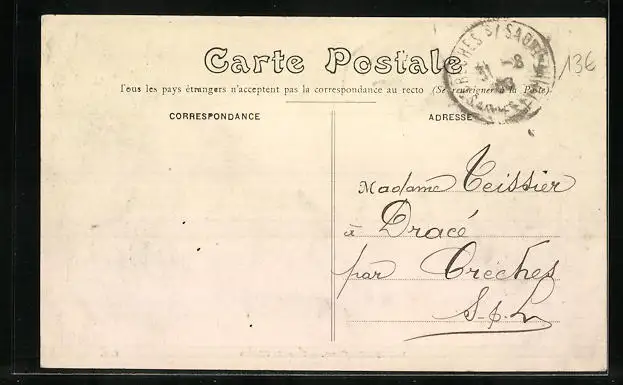 Carte Postale
Tous les pays étrangers n'acceptent pas la correspondance au recto (Se renseigner à la Poste)
CORRESPONDANCE
ADRESSE
13€
31 -8
Madame Teissier
à Dracé
par Crèches
S.-&-L